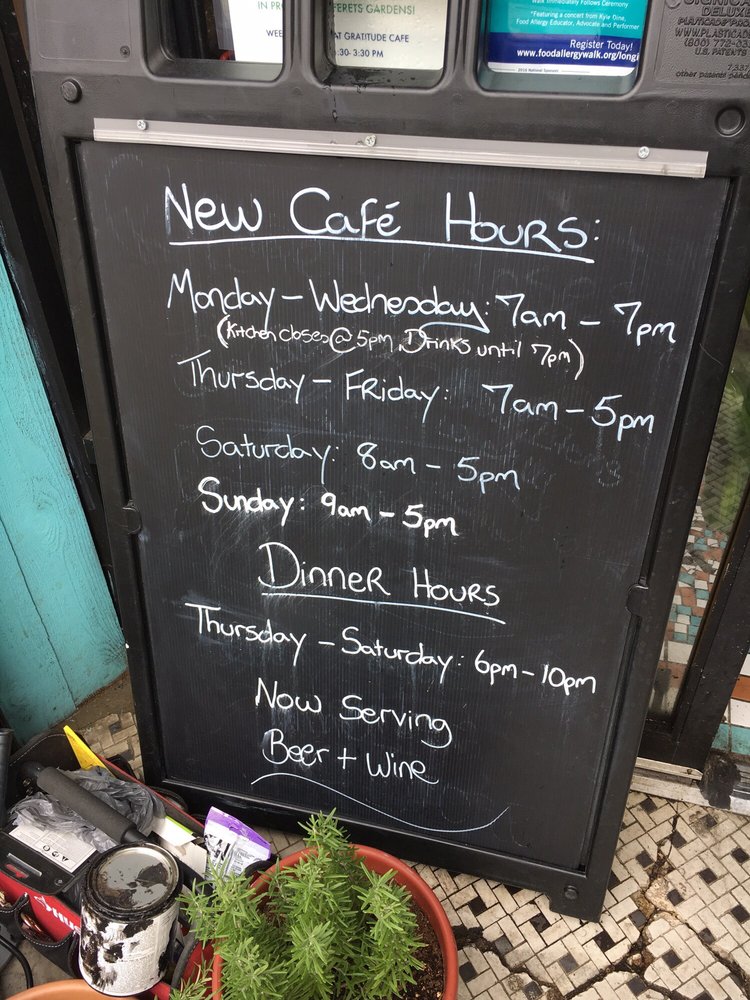 IN PRO
WEE
FERETS GARDENS!
AT GRATITUDE CAFE
:30- 3:30 PM
Walk Immediately Follows Ceremony
*Featuring a concert from Kyle Dine,
Food Allergy Educator, Advocate and Performer
Register Today!
www.foodallergywalk.org/longi
2016 National Sponsors
DELUXE
PLASTICADE® PRO
WWW.PLASTICADE
(800) 772-03
U.S. PATENTS
7,337
other patents pendi
New Café Hours:
Monday – Wednesday: 7am – 7pm
(Kitchen closes @ 5pm, Drinks until 7pm)
Thursday – Friday: 7am – 5pm
Saturday: 8am – 5pm
Sunday: 9am – 5pm
Dinner Hours
Thursday – Saturday: 6pm – 10pm
Now Serving
Beer + Wine